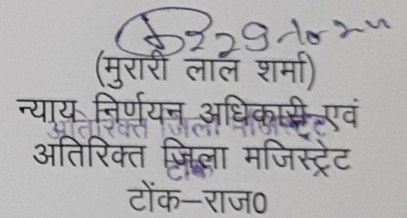 29-10-24
(मुरारी लाल शर्मा)
न्याय निर्णयन अधिकारी एवं
अतिरिक्त जिला मजिस्ट्रेट
अतिरिक्त जिला मजिस्ट्रेट
टोंक
टोंक-राज0